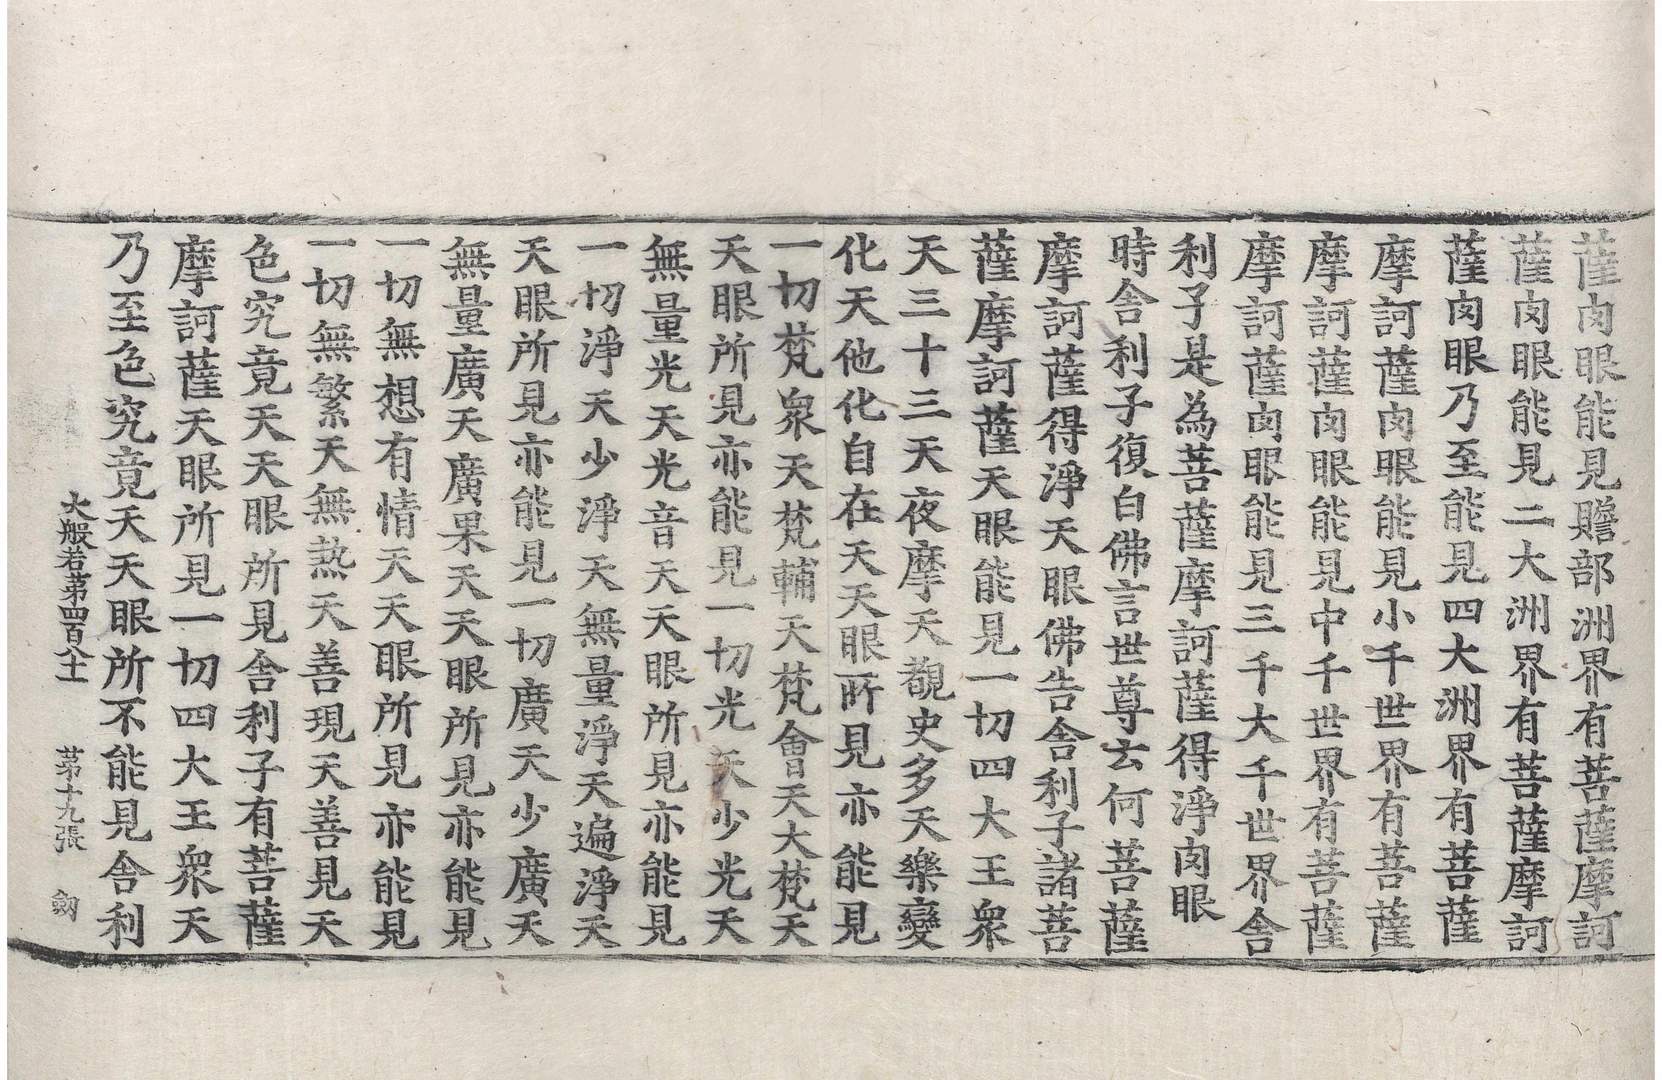 薩肉眼能見贍部洲界有菩薩摩訶
薩肉眼能見二大洲界有菩薩摩訶
薩肉眼乃至能見四大洲界有菩薩
摩訶薩肉眼能見小千世界有菩薩
摩訶薩肉眼能見中千世界有菩薩
摩訶薩肉眼能見三千大千世界舍
利子是為菩薩摩訶薩得淨肉眼
時舍利子復白佛言世尊云何菩薩
摩訶薩得淨天眼佛告舍利子諸菩
薩摩訶薩天眼能見一切四大王衆
天三十三天夜摩天覩史多天樂變
化天他化自在天天眼所見亦能見
一切梵衆天梵輔天梵會天大梵天
天眼所見亦能見一切光天少光天
無量光天光音天天眼所見亦能見
一切淨天少淨天無量淨天遍淨天
天眼所見亦能見一切廣天少廣天
無量廣天廣果天天眼所見亦能見
一切無想有情天天眼所見亦能見
一切無繁天無熱天善現天善見天
色究竟天天眼所見舍利子有菩薩
摩訶薩天眼所見一切四大王衆天
乃至色究竟天天眼所不能見舍利
大般若第四百 第十九張 劒